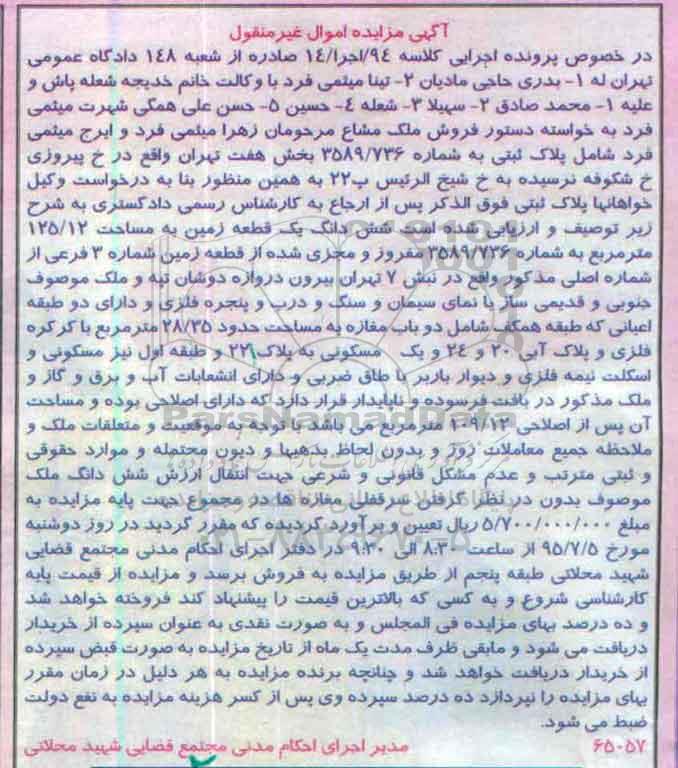 آگهی مزایده اموال غیرمنقول
در خصوص پرونده اجرایی کلاسه ۹۴/اجرا/۱۴ صادره از شعبه ۱۴۸ دادگاه عمومی
تهران له ۱- بدری حاجی مادیان ۲- تینا میثمی فرد با وکالت خانم خدیجه شعله پاش و
علیه ۱- محمد صادق ۲- سهیلا ۳- شعله ۴- حسین ۵- حسن علی همگی شهرت میثمی
فرد به خواسته دستور فروش ملک مشاع مرحومان زهرا میثمی فرد و ایرج میثمی
فرد شامل پلاک ثبتی به شماره ۳۵۸۹/۷۳۶ بخش هفت تهران واقع در خ پیروزی
خ شکوفه نرسیده به خ شیخ الرئیس پ۲۲ به همین منظور بنا به درخواست وکیل
خواهانها پلاک ثبتی فوق الذکر پس از ارجاع به کارشناس رسمی دادگستری به شرح
زیر توصیف و ارزیابی شده است شش دانگ یک قطعه زمین به مساحت ۱۲۵/۱۲
مترمربع به شماره ۳۵۸۹/۷۳۶ مفروز و مجزی شده از قطعه زمین شماره ۳ فرعی از
شماره اصلی مذکور واقع در نبش ۷ تهران بیرون دروازه دوشان تپه و ملک موصوف
جنوبی و قدیمی ساز با نمای سیمان و سنگ و درب و پنجره فلزی و دارای دو طبقه
اعیانی که طبقه همکف شامل دو باب مغازه به مساحت حدود ۲۸/۳۵ مترمربع با کرکره
فلزی و پلاک آبی ۲۰ و ۲۴ و یک مسکونی به پلاک ۲۲ و طبقه اول نیز مسکونی و
اسکلت نیمه فلزی و دیوار باربر با طاق ضربی و دارای انشعابات آب و برق و گاز و
ملک مذکور در بافت فرسوده و ناپایدار قرار دارد که دارای اصلاحی بوده و مساحت
آن پس از اصلاحی ۱۰۹/۱۲ مترمربع می باشد با توجه به موقعیت و متعلقات ملک و
ملاحظه جمیع معاملات روز و بدون لحاظ بدهیها و دیون محتمله و موارد حقوقی
و ثبتی مترتب و عدم مشکل قانونی و شرعی جهت انتقال ارزش شش دانگ ملک
موصوف بدون در نظر گرفتن سرقفلی مغازه ها در مجموع جهت پایه مزایده به
مبلغ ۵/۷۰۰/۰۰۰/۰۰۰ ریال تعیین و برآورد گردیده که مقرر گردید در روز دوشنبه
مورخ ۹۵/۷/۵ از ساعت ۸:۳۰ الی ۹:۳۰ در دفتر اجرای احکام مدنی مجتمع قضایی
شهید محلاتی طبقه پنجم از طریق مزایده به فروش برسد و مزایده از قیمت پایه
کارشناسی شروع و به کسی که بالاترین قیمت را پیشنهاد کند فروخته خواهد شد
و ده درصد بهای مزایده فی المجلس و به صورت نقدی به عنوان سپرده از خریدار
دریافت می شود و مابقی ظرف مدت یک ماه از تاریخ مزایده به صورت قبض سپرده
از خریدار دریافت خواهد شد و چنانچه برنده مزایده به هر دلیل در زمان مقرر
بهای مزایده را نپردازد ده درصد سپرده وی پس از کسر هزینه مزایده به نفع دولت
ضبط می شود.
۶۵۰۵۷ مدیر اجرای احکام مدنی مجتمع قضایی شهید محلاتی
ParsNamadData